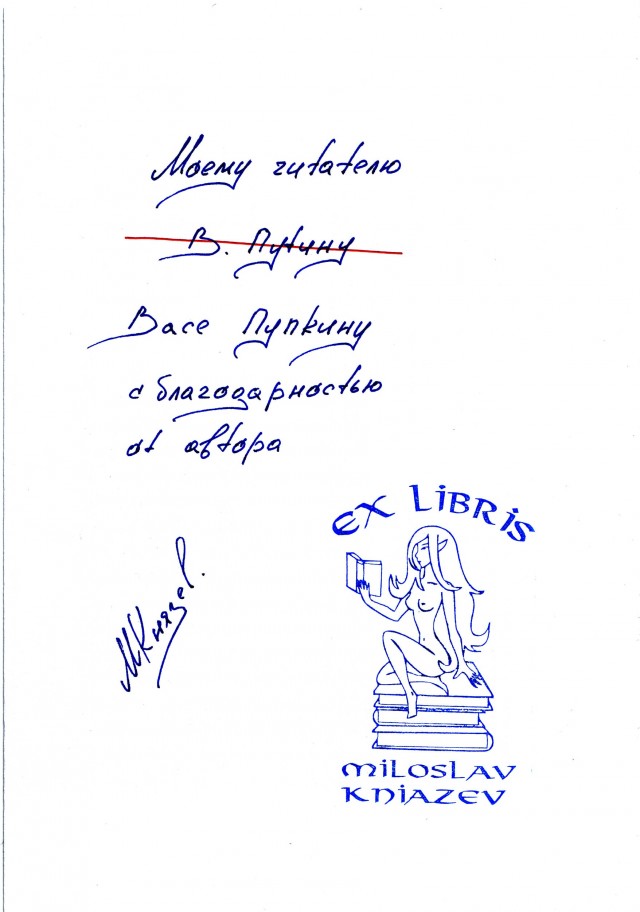 Моему читателю
В. Путину
Васе Пупкину
с благодарностью
от автора
МКнязев.
EX LIBRIS
MILOSLAV
KNIAZEV